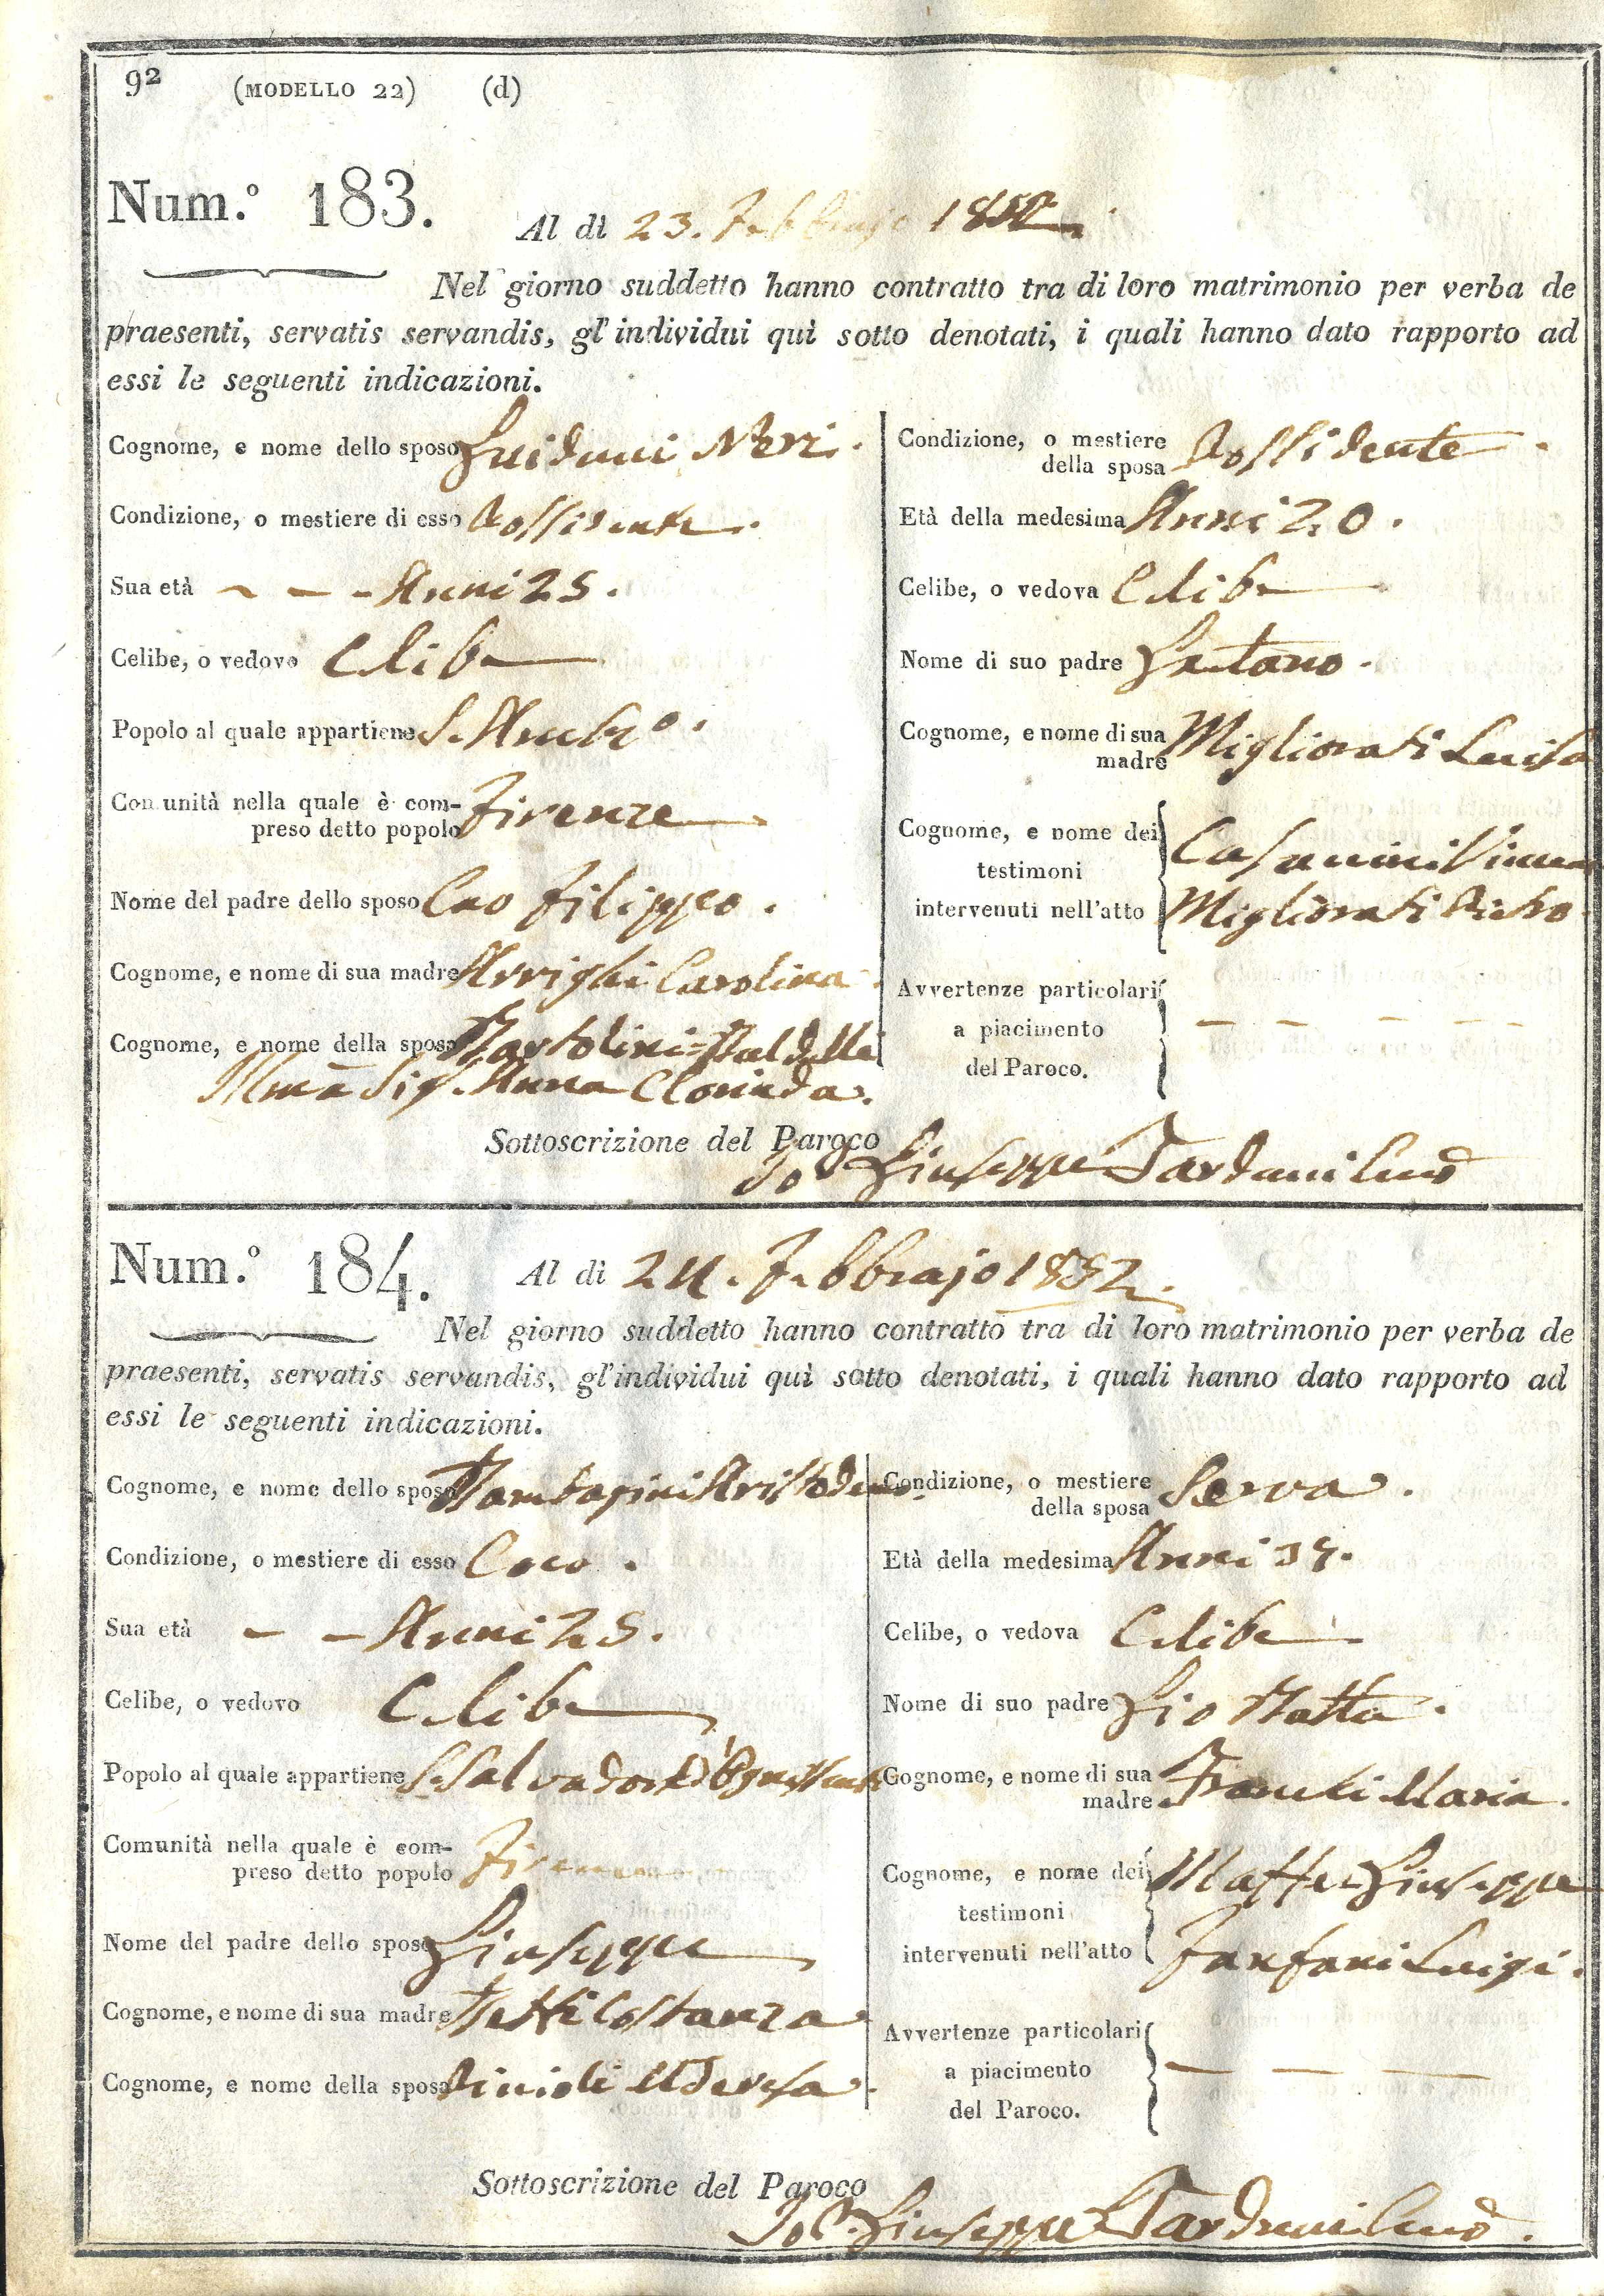 92 (MODELLO 22) (d)
Num.° 183. Al dì 23. Febbrajo
Nel giorno suddetto hanno contratto tra di loro matrimonio per verba de
praesenti, servatis servandis, gl'individui quì sotto denotati, i quali hanno dato rapporto ad
essi le seguenti indicazioni.
Cognome, e nome dello sposo Neri.
Condizione, o mestiere di esso Possidente.
Sua età - - - Anni 25.
Celibe, o vedovo Celibe
Popolo al quale appartiene
Comunità nella quale è com-
preso detto popolo Firenze
Nome del padre dello sposo Cav Filippo.
Cognome, e nome di sua madre Arrighi Carolina.
Cognome, e nome della sposa Bartolini=Baldelli
Illma Sig. Anna Clorinda.
Condizione, o mestiere
della sposa Possidente.
Età della medesima Anni 20.
Celibe, o vedova Celibe
Nome di suo padre Gaetano.
Cognome, e nome di sua
madre Migliorati Luisa
Cognome, e nome dei
testimoni
intervenuti nell'atto Migliorati Pietro.
Avvertenze particolari
a piacimento
del Paroco. - - - -
Sottoscrizione del Paroco
Io Giuseppe
Num.° 184. Al dì 24. Febbrajo 1832.
Nel giorno suddetto hanno contratto tra di loro matrimonio per verba de
praesenti, servatis servandis, gl'individui quì sotto denotati, i quali hanno dato rapporto ad
essi le seguenti indicazioni.
Cognome, e nome dello sposo Aristodemo.
Condizione, o mestiere di esso Coco.
Sua età - - Anni 25.
Celibe, o vedovo Celibe
Popolo al quale appartiene S. Salvadore d'Ognissanti
Comunità nella quale è com-
preso detto popolo Firenze
Nome del padre dello sposo Giuseppe
Cognome, e nome di sua madre Costanza
Cognome, e nome della sposa
Condizione, o mestiere
della sposa Serva.
Età della medesima Anni
Celibe, o vedova Celibe
Nome di suo padre Gio Batta.
Gognome, e nome di sua
madre Maria.
Cognome, e nome dei
testimoni Maffei Giuseppe
intervenuti nell'atto Fanfani Luigi.
Avvertenze particolari
a piacimento
del Paroco. - - -
Sottoscrizione del Paroco
Io Giuseppe